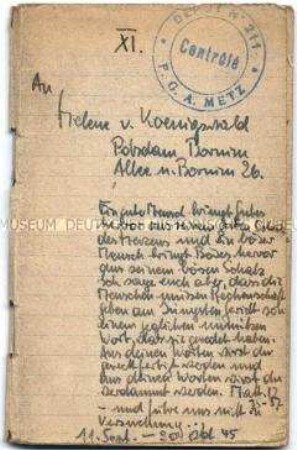 XI.
DEPOT N° 211
Contrôlé
P.G.A. METZ
An
Helene v. Koenigswald
Potsdam Bornim
Allee n. Bornim 26.
Ein guter Mensch bringt Gutes
hervor aus seinem guten Schatz
des Herzens und ein böser
Mensch bringt Böses hervor
aus seinem bösen Schatz
Ich sage euch aber, dass die
Menschen müssen Rechenschaft
geben am Jüngsten Gericht von
einem jeglichen unnützen
Wort, das sie geredet haben.
Aus deinen Worten wirst du
gerechtfertigt werden und
aus deinen Worten wirst du
verdammt werden. Matt. 12
35-37
- und führe uns nicht in
Versuchung...
11. Sept. - 20. Okt 45